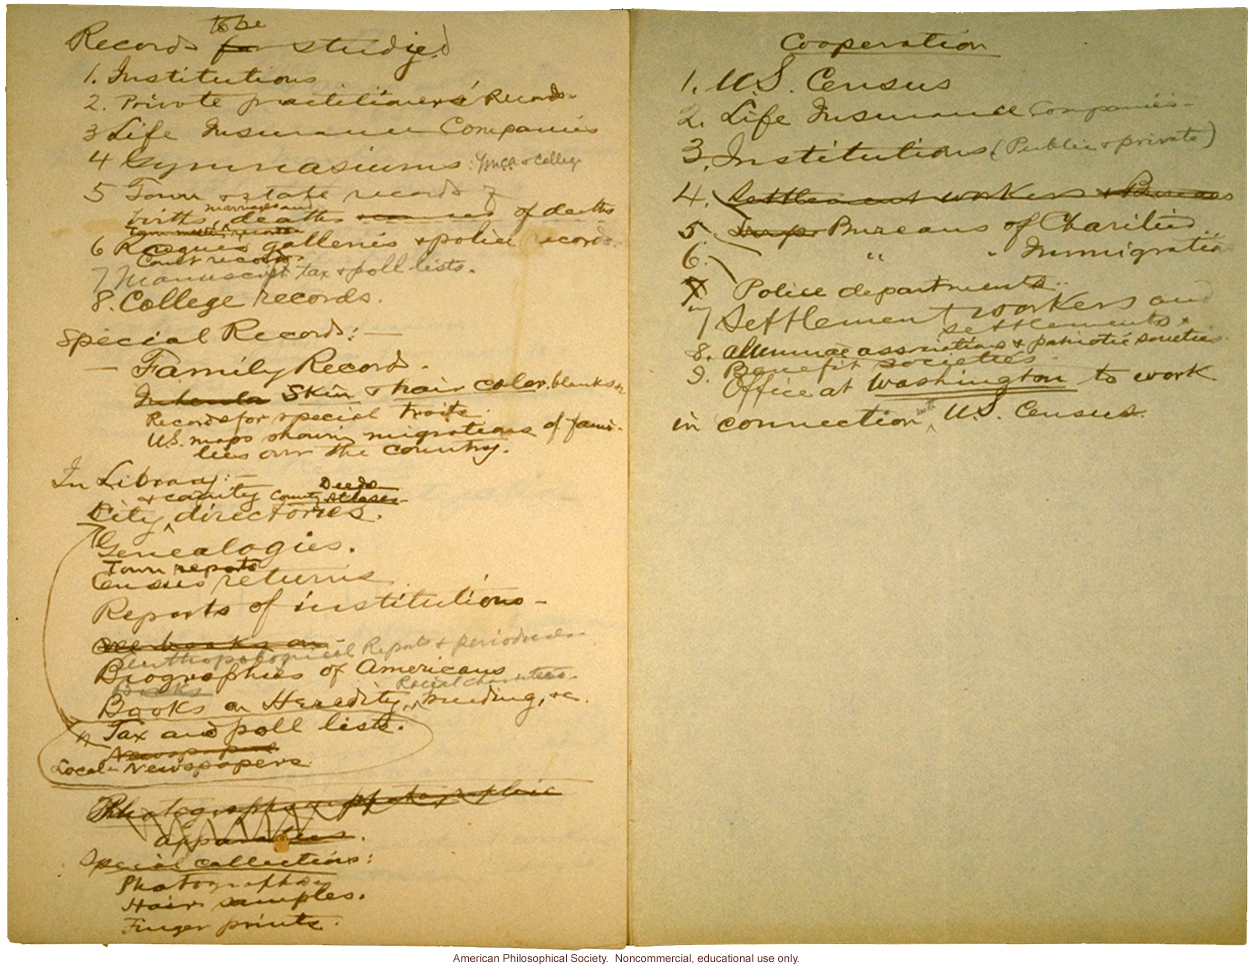 to be
Records for studied
1. Institutions
2. Private practitioners' Records
3 Life Insurance Companies
4 Gymnasiums: Ymca & College
5 Town & state records of
marriages and
births, deaths causes of deaths
6 Rogues galleries & police records.
Court records.
7 Manuscript tax & poll lists.
8. College records.
Special Records:—
— Family Record.
Skin & hair color blanks
Records for special traits
U.S. maps showing migrations of fami-
lies over the country.
In Library:
Deeds
& county County Atlases
City directories.
Genealogies.
Town reports
Census returns
Reports of institutions —
All books on
Anthropological Reports & periodicals
Biographies of Americans
Books Racial characters
Books on Heredity, breeding, &c.
Tax and poll lists.
Newspapers
Local Newspapers
Photographs photographic
apparatus.
Special collections:
Photographs
Hair samples.
Finger prints.
Cooperation
1. U.S. Census
2. Life Insurance Companies —
3. Institutions (Public & private)
4. Settlement workers & Bureaus
5 Bureaus of Charities
6. " " Immigration
7 Police departments
7 Settlement workers and
settlements.
8. alumnae associations & patriotic societies
9. Benefit societies
Office at Washington to work
in connection with U.S. Census.
American Philosophical Society. Noncommercial, educational use only.